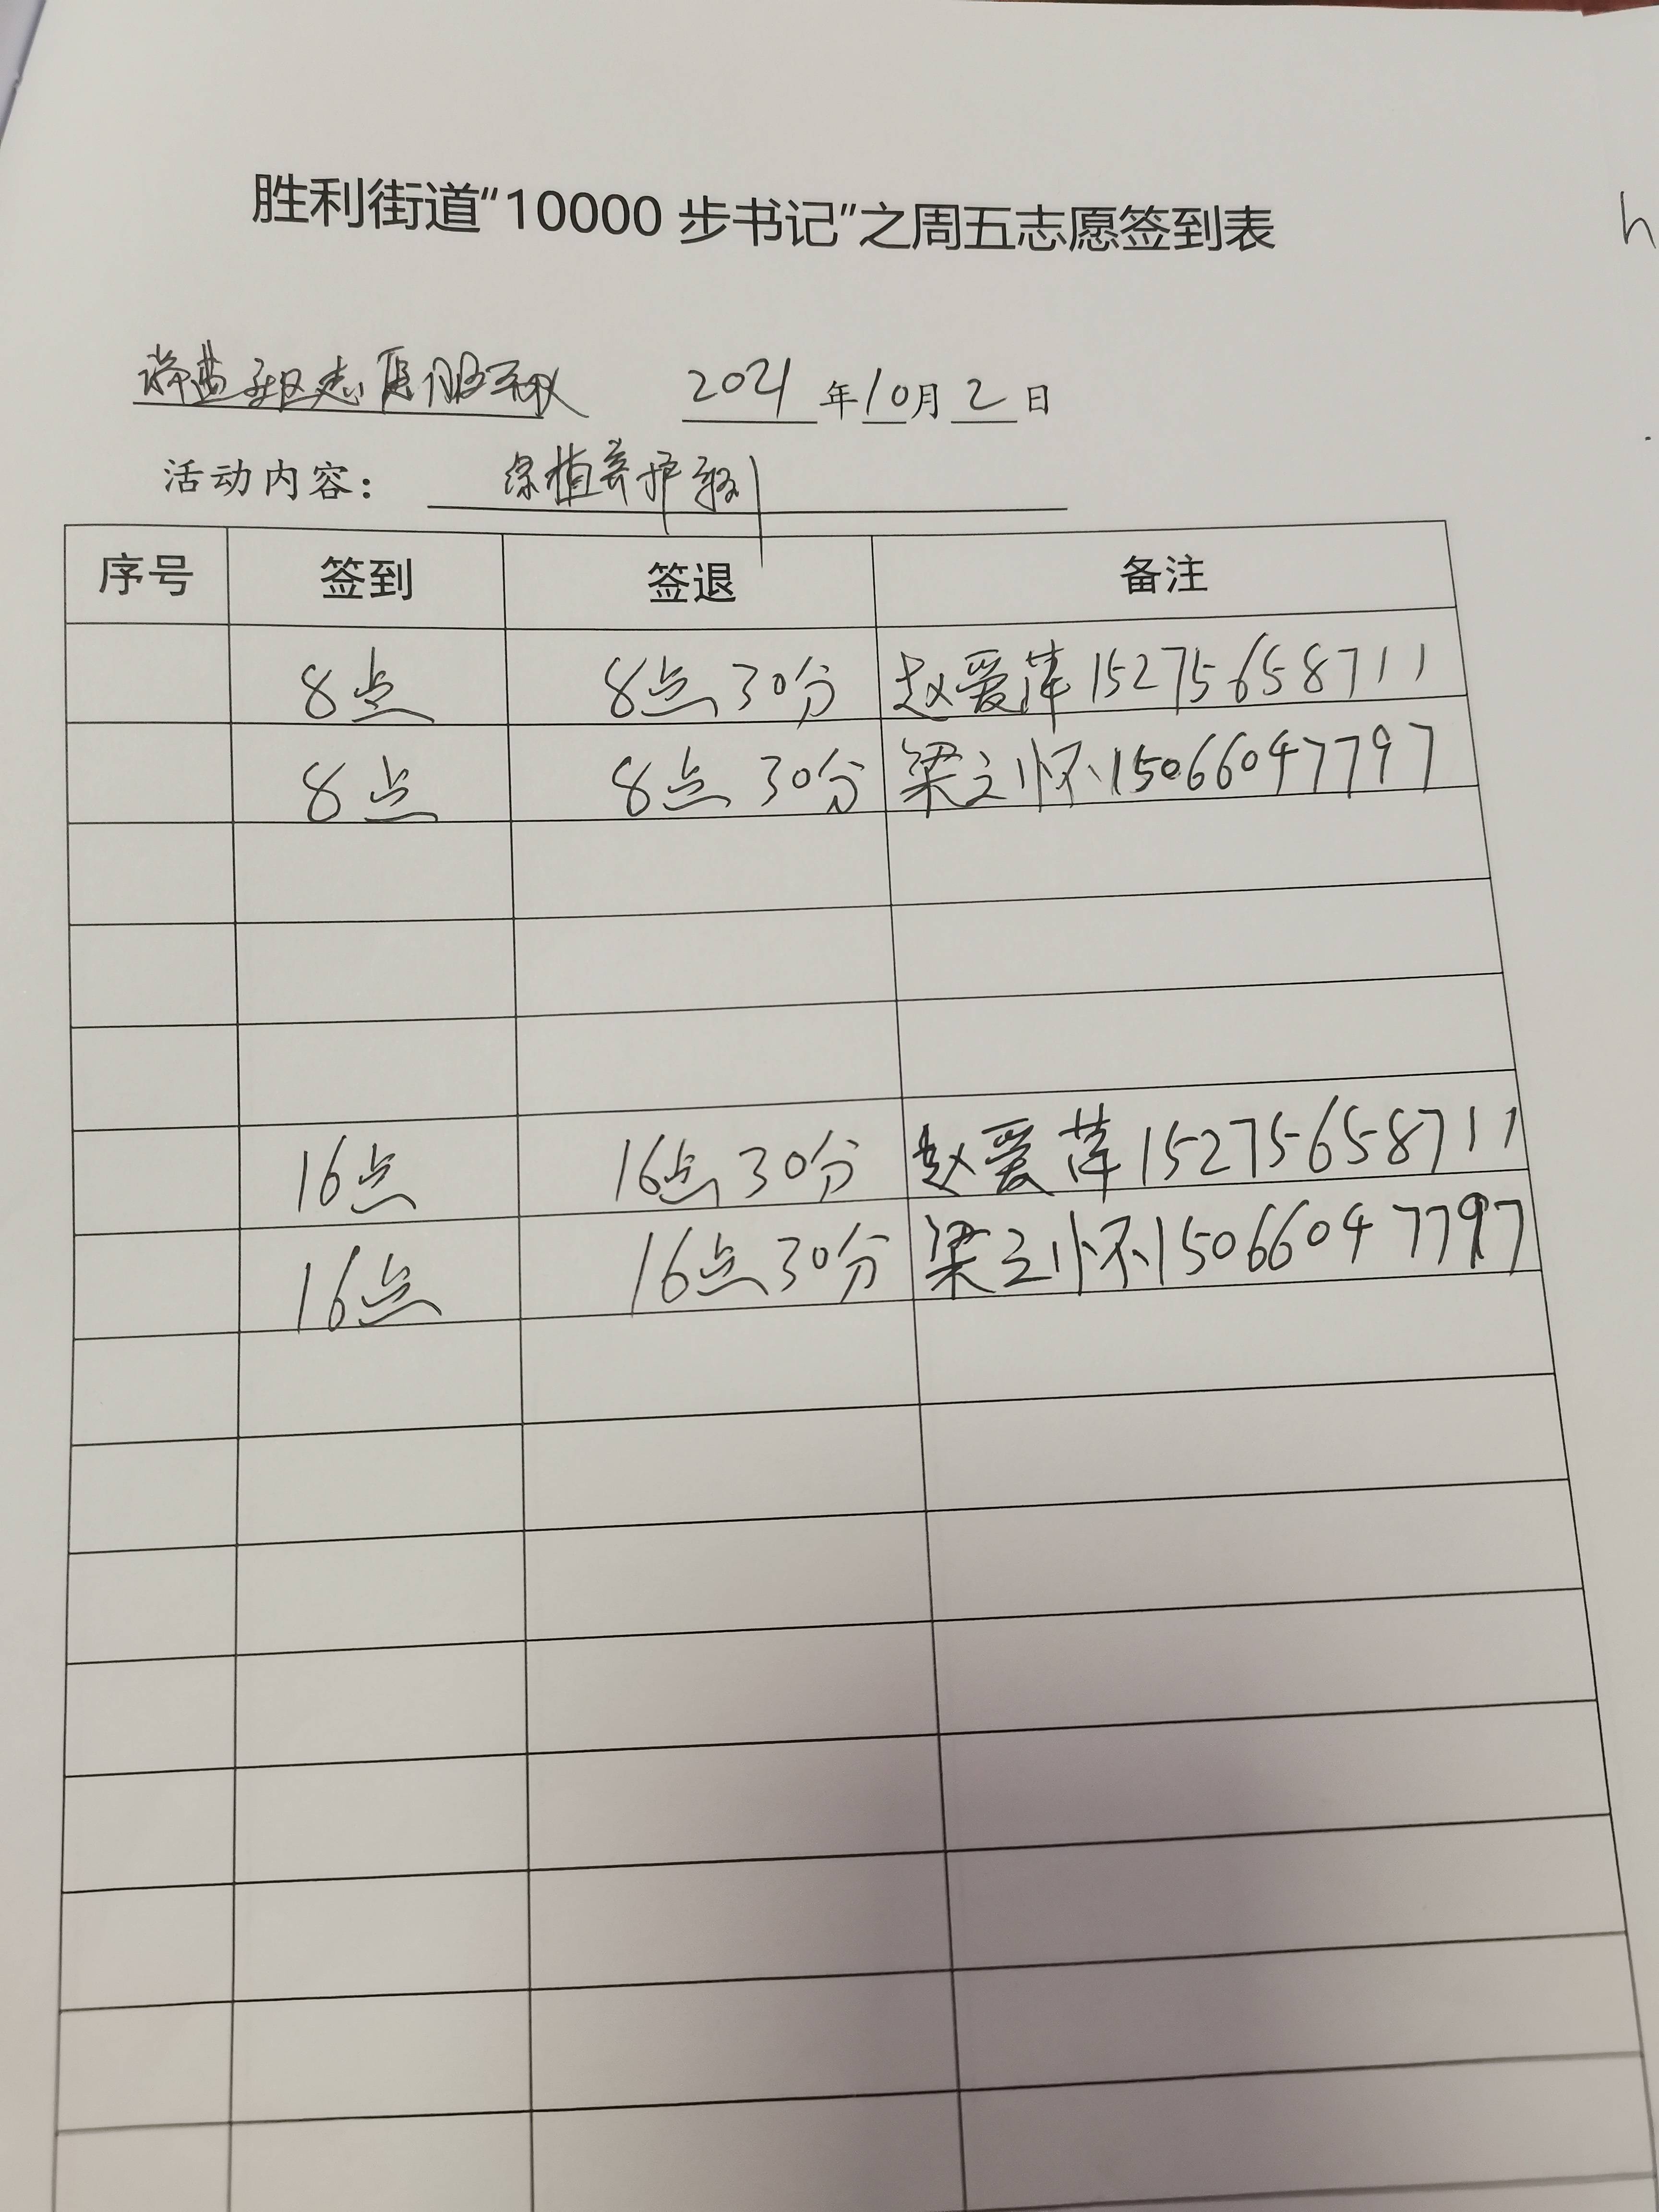 胜利街道“10000 步书记”之周五志愿签到表
h
社区志愿服务队 2021 年 10 月 2 日
活动内容： 绿植养护
序号 签到 签退 备注
8点 8点30分 赵爱萍 15275658711
8点 8点30分 梁立怀 15066047797
16点 16点30分 赵爱萍 15275658711
16点 16点30分 梁立怀 15066047797